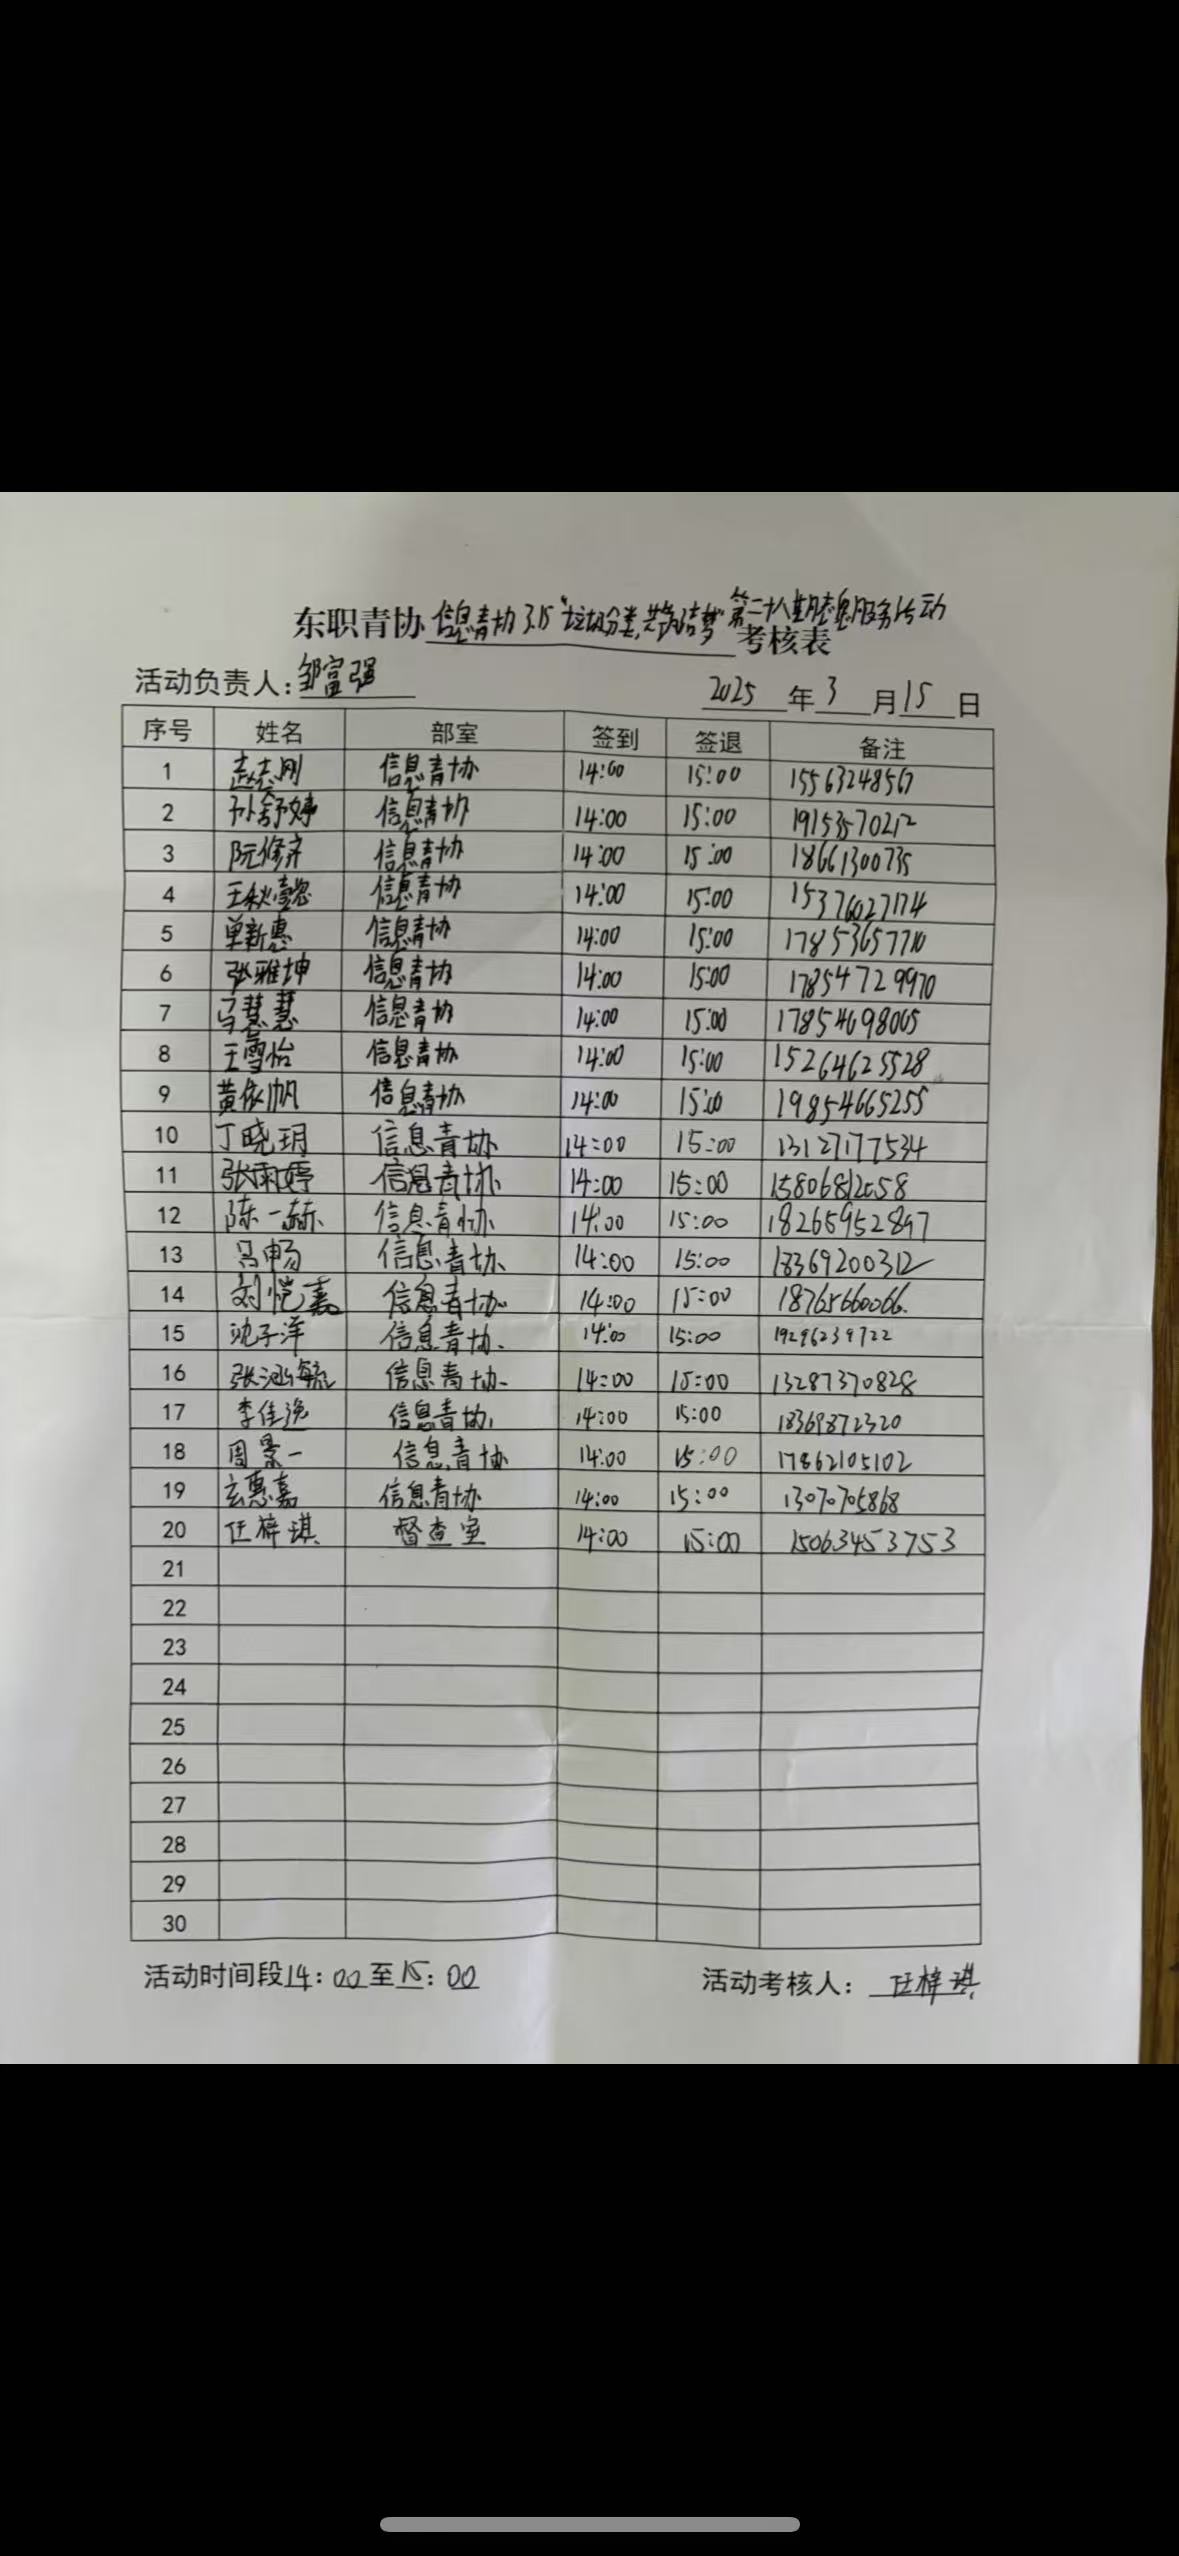 东职青协信息青协3.15“垃圾分类,共筑洁梦”第二十八期志愿服务活动考核表
活动负责人:邹富强 2025年3月15日
序号 姓名 部室 签到 签退 备注
1 赵志刚 信息青协 14:00 15:00 15563248567
2 孙舒婷 信息青协 14:00 15:00 19153570212
3 阮修齐 信息青协 14:00 15:00 18661300735
4 王秋懿 信息青协 14:00 15:00 15376027174
5 单新惠 信息青协 14:00 15:00 17853657710
6 张雅坤 信息青协 14:00 15:00 17854729970
7 马慧慧 信息青协 14:00 15:00 17854698065
8 王雪怡 信息青协 14:00 15:00 15264625528
9 黄依帆 信息青协 14:00 15:00 19854665255
10 丁晓玥 信息青协 14:00 15:00 13127177534
11 张雨婷 信息青协 14:00 15:00 15806812658
12 陈一赫 信息青协 14:00 15:00 18265952897
13 吕畅 信息青协 14:00 15:00 18369200312
14 刘恺嘉 信息青协 14:00 15:00 18765660066
15 沈子洋 信息青协 14:00 15:00 19296239722
16 张涵毓 信息青协 14:00 15:00 13287370828
17 李佳逸 信息青协 14:00 15:00 18369872320
18 周景一 信息青协 14:00 15:00 17862105102
19 玄惠嘉 信息青协 14:00 15:00 13070705868
20 任梓琪 督查室 14:00 15:00 15063453753
21
22
23
24
25
26
27
28
29
30
活动时间段14:00至15:00 活动考核人:任梓琪